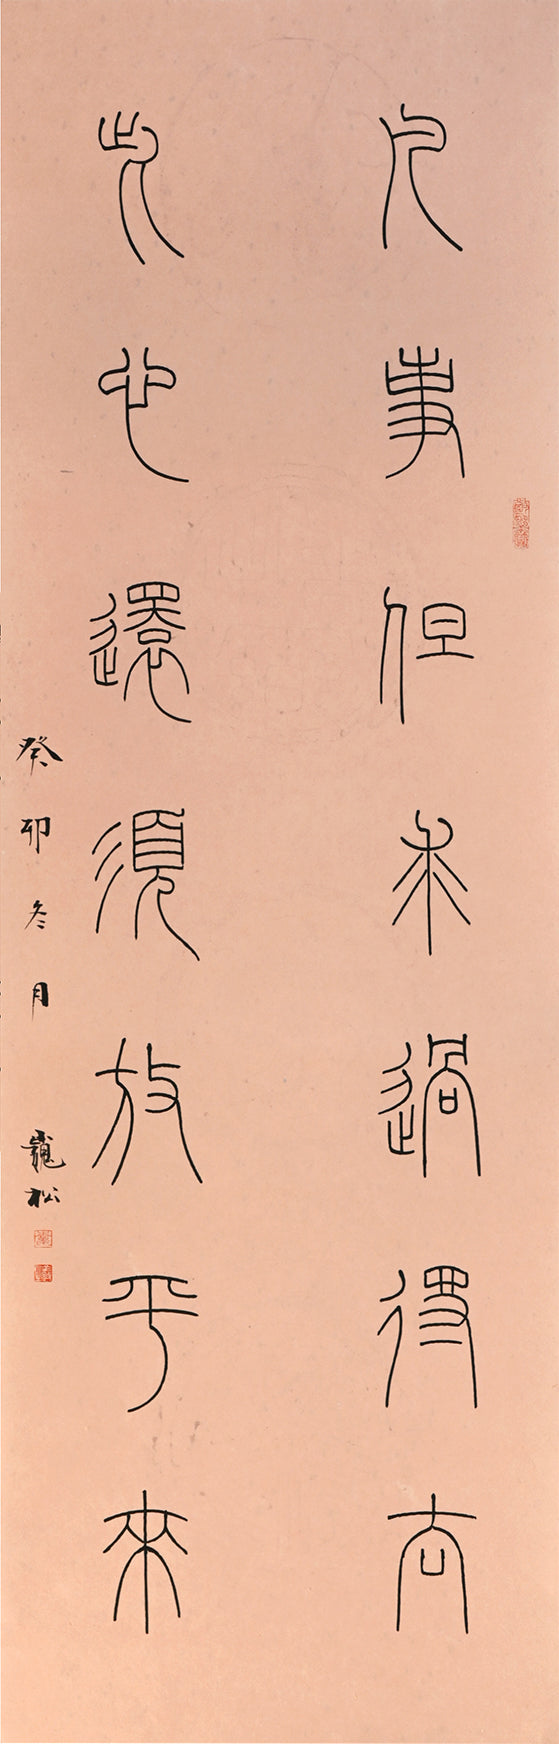 凡事但求過得去
此心還須放平來
癸卯冬月 龍松